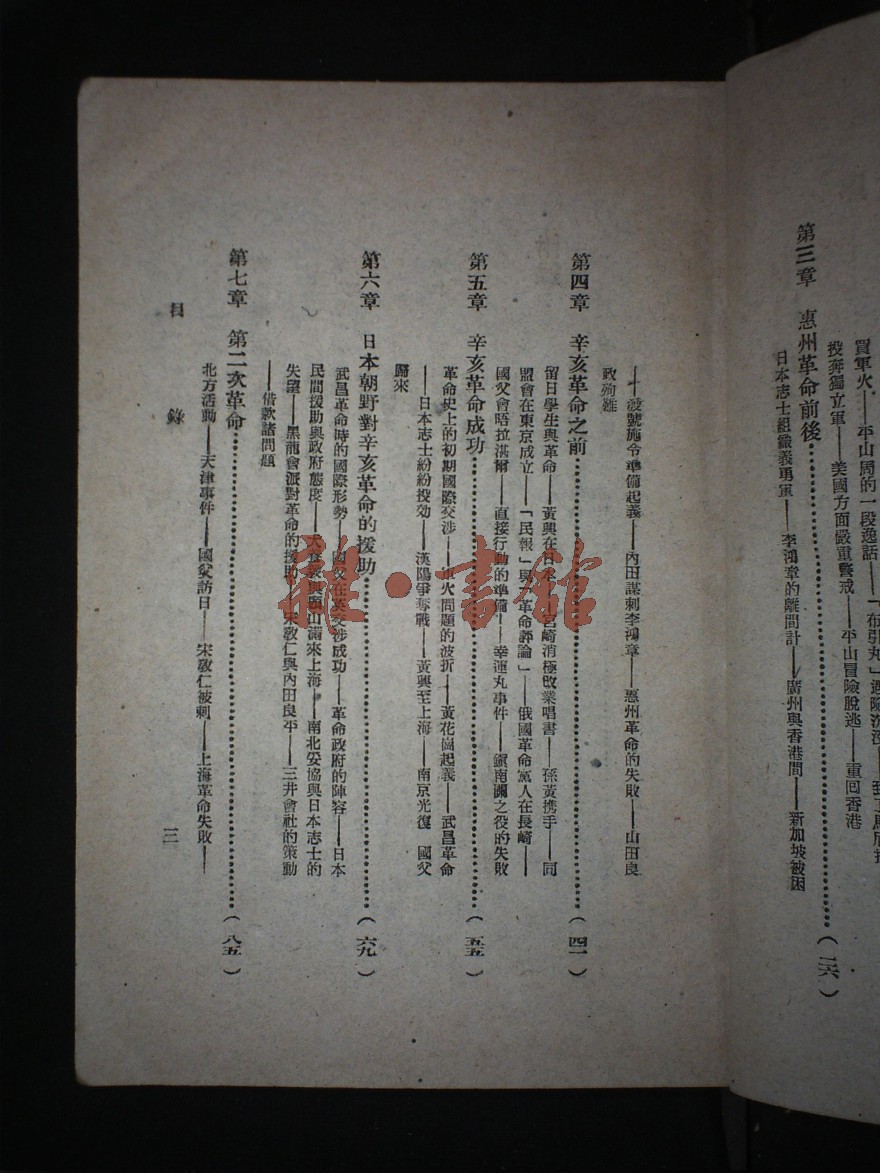 買軍火——平山周的一段逸話——「布引丸」遇險沉沒
投奔獨立軍——美國方面嚴重警戒——平山冒險脫逃——重回香港
第三章　惠州革命前後……（二六）
日本志士組織義勇軍——李鴻章的離間計——廣州與香港間——新加坡被困
——發號施令準備起義——內田謀刺李鴻章——惠州革命的失敗——山田良
政殉難
第四章　辛亥革命之前……（四一）
留日學生與革命——黃興在日本——宮崎消極改業唱書——孫黃携手——同
盟會在東京成立——「民報」與「革命評論」——俄國革命黨人在長崎——
國父會晤拉淇爾——直接行動的準備——幸運丸事件——鎮南關之役的失敗
第五章　辛亥革命成功……（五五）
革命史上的初期國際交涉——軍火問題的波折——黃花崗起義——武昌革命
——日本志士紛紛投効——漢陽爭奪戰——黃興至上海——南京光復　國父
歸來
第六章　日本朝野對辛亥革命的援助……（六九）
武昌革命時的國際形勢——國父在英交涉成功——革命政府的陣容——日本
民間援助與政府態度——犬養毅與頭山滿來上海——南北妥協與日本志士的
失望——黑龍會派對革命的援助——宋敎仁與內田良平——三井會社的策動
——借款諸問題
第七章　第二次革命……（八五）
北方活動——天津事件——國父訪日——宋敎仁被刺——上海革命失敗——
目　錄　三
雅·書館